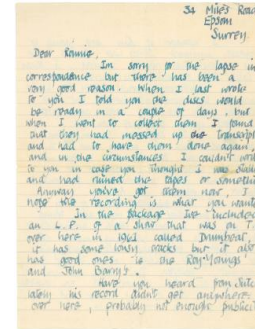 34 Miles Road
Epsom
Surrey.
Dear Ronnie,
I'm sorry for the lapse in
correspondence but there has been a
very good reason. When I last wrote
to you I told you the discs would
be ready in a couple of days, but
when I went to collect them I found
that they had messed up the transcript
and had to have them done again,
and in the circumstances I couldn't
to you in case you thought I was
and had ruined the tapes or something
Anyway you've got them now. I
hope the recording is what you want
In the package I've included
an L.P. of a show that was on T.
over here in 1961 called Drumbeat,
it has some lousy tracks but it also
has good ones ie the Raye-Youngs
and John Barry's.
Have you heard from
lately his record didn't get anywhere
over here, probably not enough public